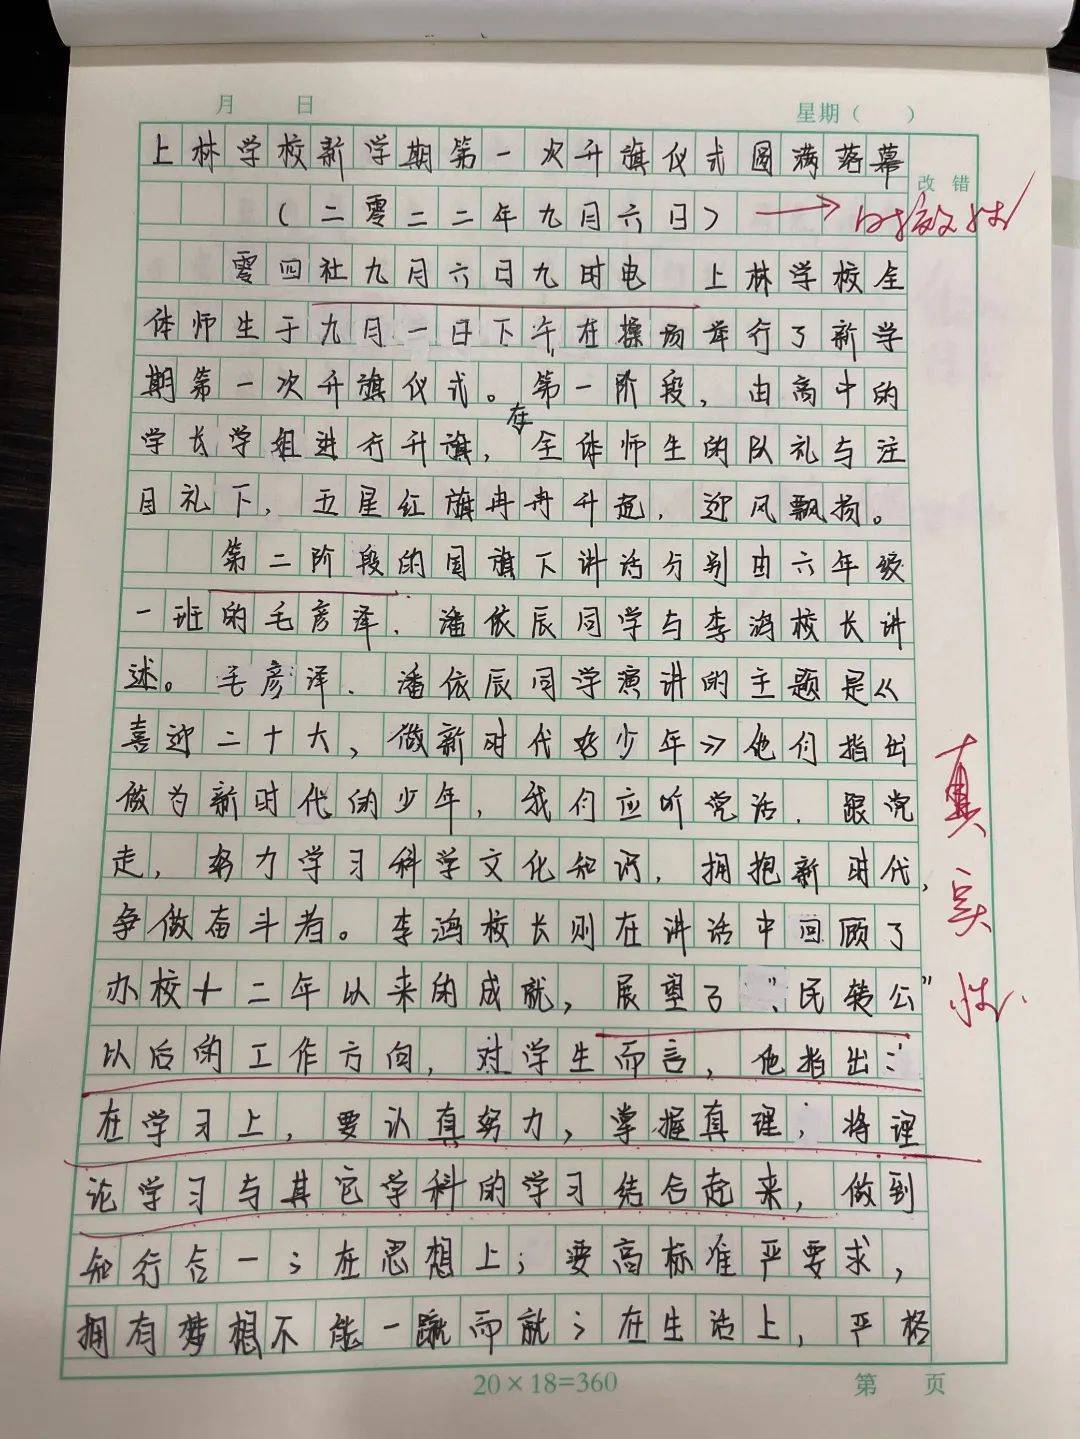 月 日 星期( )
上林学校新学期第一次升旗仪式圆满落幕
改错
(二零二二年九月六日) 时效性
零四社九月六日九时电 上林学校全
体师生于九月一日下午在操场举行了新学
期第一次升旗仪式。第一阶段,由高中的
学长学姐进行升旗,在全体师生的队礼与注
目礼下,五星红旗冉冉升起,迎风飘扬。
第二阶段的国旗下讲话分别由六年级
一班的毛彦泽、潘依辰同学与李鸿校长讲
述。毛彦泽、潘依辰同学演讲的主题是《
喜迎二十大,做新时代好少年》他们指出
做为新时代的少年,我们应听党话、跟党
走,努力学习科学文化知识,拥抱新时代,
争做奋斗者。李鸿校长则在讲话中回顾了
办校十二年以来的成就,展望了“民转公”
以后的工作方向,对学生而言,他指出:
在学习上,要认真努力,掌握真理;将理
论学习与其它学科的学习结合起来,做到
知行合一;在思想上;要高标准严要求,
拥有梦想不能一蹴而就;在生活上,严格
真实性
20×18=360
第 页